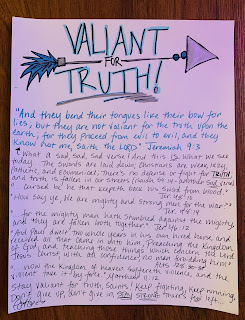 VALIANT
FOR
TRUTH!
"And they bend their tongues like their bow for
lies; but they are not valiant for the truth upon the
earth; for they proceed from evil to evil, and they
know not me, saith the LORD" Jeremiah 9:3
What a sad, sad, sad verse! And this IS what we see
today. The swords are laid down, Christians are weak,
pathetic, and ecumenical, There's no defense or fight for TRUTH
and truth is fallen in our streets. (Isaiah 59 is another sad verse)
"Cursed be he that keepeth back his sword from blood"
Jer 48:10
"How say ye, We are mighty and strong men for the war"
Jer 48:14
for the mighty man hath stumbled against the mighty,
and they are fallen both together" Jer 46:12
"And Paul dwelt two whole years in his own hired house, and
received all that came in unto him, Preaching the kingdom
of God, and teaching those things which concern the Lord
Jesus Christ, with all confidence, no man forbidding him"
Acts 28:30-31
the kingdom of heaven suffereth violence, and the
violent take it by force" Matthew 11:12
Stay valiant for truth, Saints! Keep fighting, Keep running,
Don't give up, don't give in, STAY STRONG! There's left...